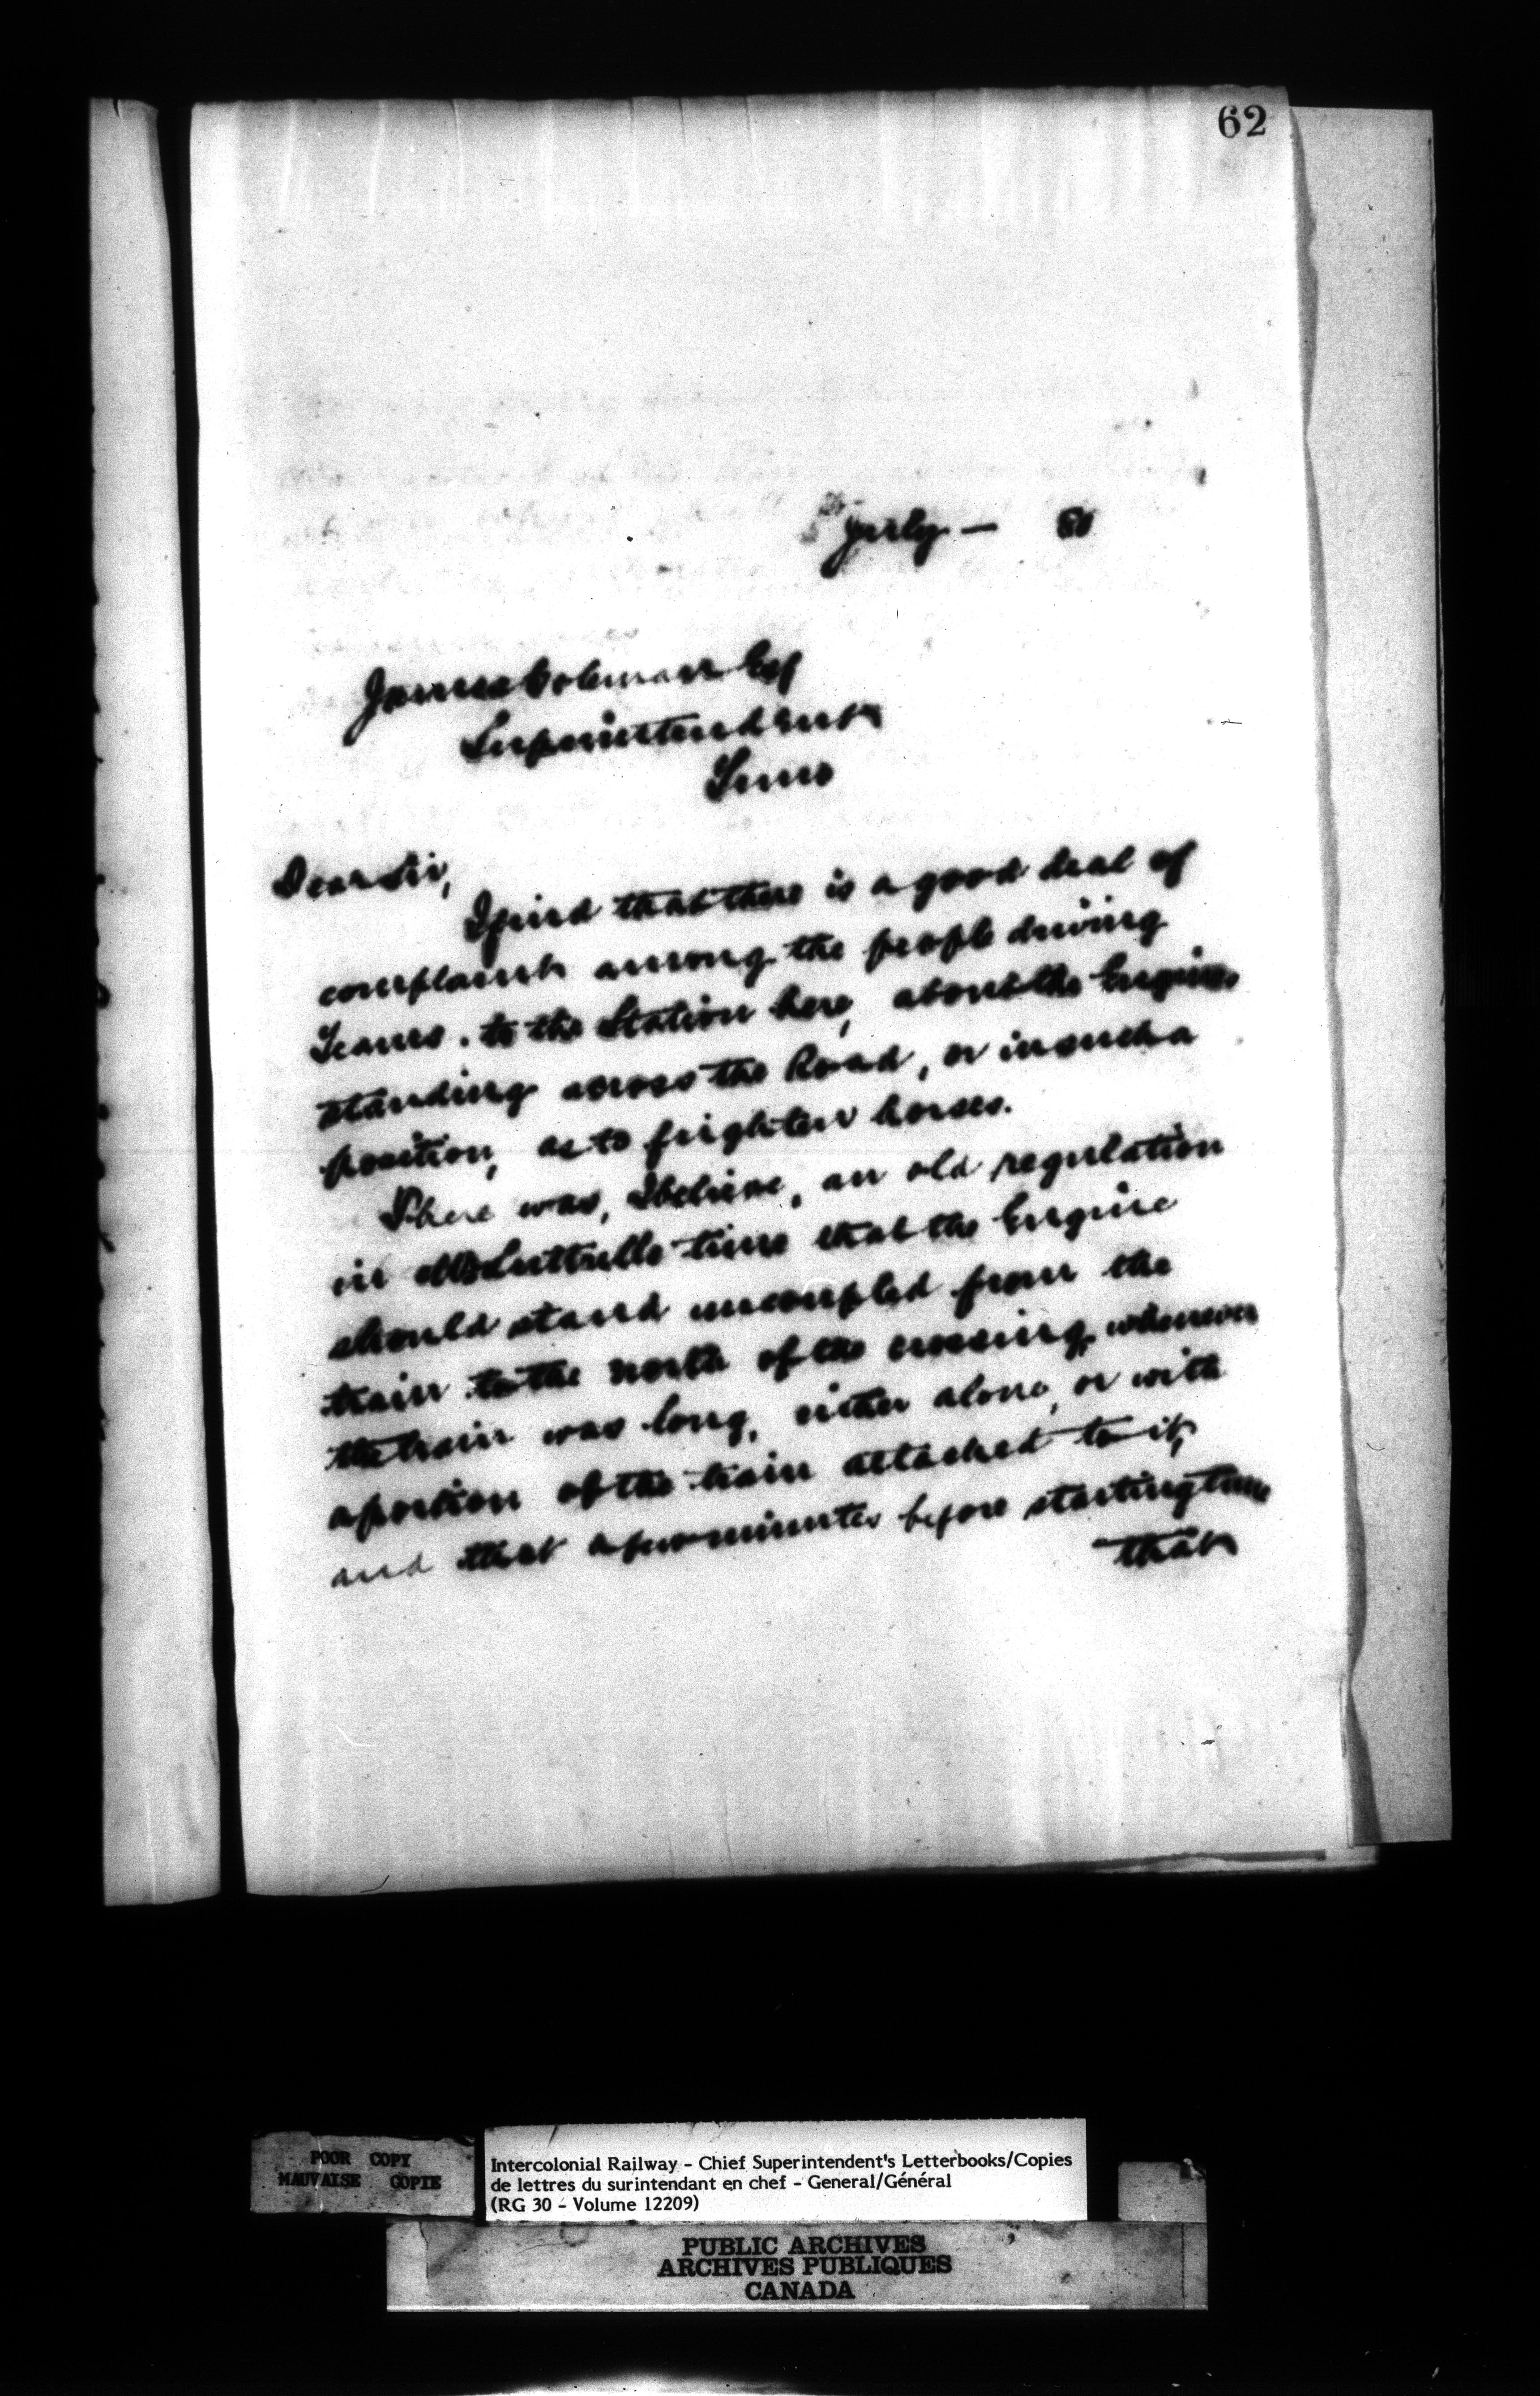 62
July — 80
James Coleman Esq
Superintendent
Dear Sir,
I find that there is a good deal of
complaint among the people driving
Teams. to the Station here, about the Engines
standing across the Road, or in such a
position, as to frighten horses.
There was, I believe, an old regulation
in Mr Luttrells time that the Engine
should stand uncoupled from the
train to the north of the crossing, whenever
the train was long, either alone, or with
a portion of the train attached to it,
and that a few minutes before starting time
that
POOR COPY
MAUVAISE COPIE
Intercolonial Railway - Chief Superintendent's Letterbooks/Copies
de lettres du surintendant en chef - General/Général
(RG 30 - Volume 12209)
PUBLIC ARCHIVES
ARCHIVES PUBLIQUES
CANADA